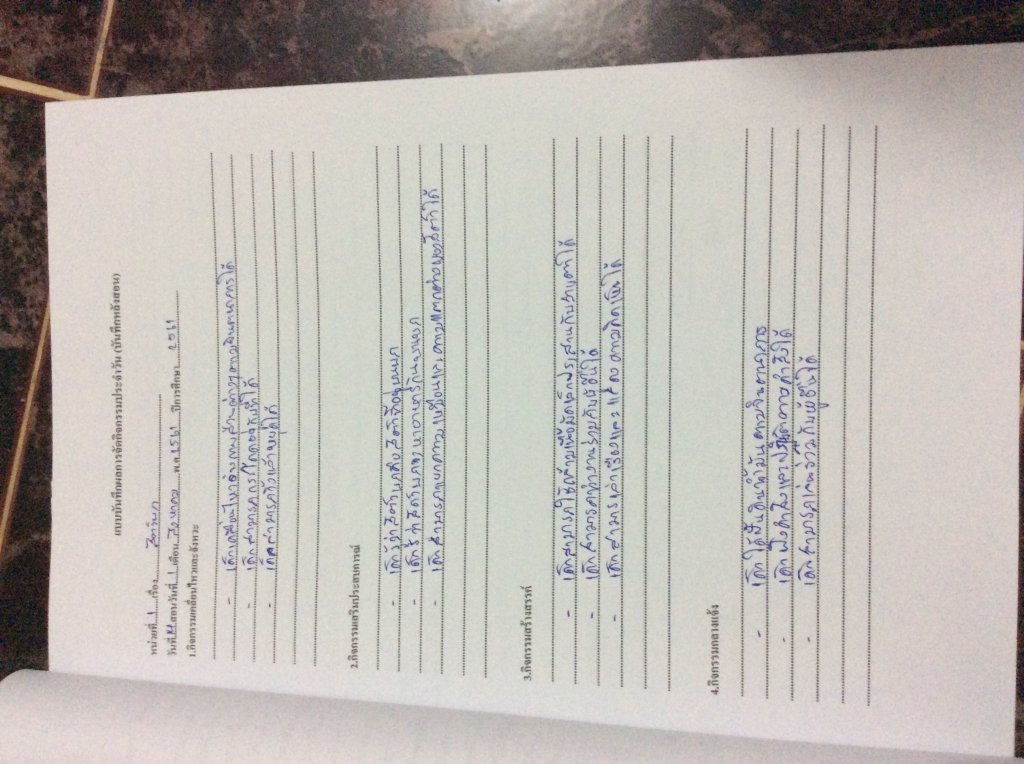 แบบบันทึกผลการจัดกิจกรรมประจำวัน (บันทึกหลังสอน)
หน่วยที่ 1 เรื่อง สัตว์บก
วันที่ สอนวันที่ 1 เดือน สิงหาคม พ.ศ 2561 ปีการศึกษา 2561
1.กิจกรรมเคลื่อนไหวและจังหวะ
- เด็กเคลื่อนไหวร่างกายส่วนต่างๆตามจินตนาการได้
- เด็กสามารถกระโดดอยู่กับที่ได้
- เด็กสามารถวิ่งแล้วหยุดได้
2.กิจกรรมเสริมประสบการณ์
- เด็กรู้ว่าสัตว์บกคือสัตว์ที่อยู่บนบก
- เด็กรู้ว่าสัตว์บกจะหาอาหารกินบนบก
- เด็กสามารถแยกความเหมือนและความแตกต่างของสัตว์ได้
3.กิจกรรมสร้างสรรค์
- เด็กสามารถใช้กล้ามเนื้อมัดเล็กประสานกับสายตาได้
- เด็กสามารถทำงานร่วมกับผู้อื่นได้
- เด็กสามารถเล่าเรื่องและแสดงความคิดเห็นได้
4.กิจกรรมกลางแจ้ง
- เด็กได้ปั้นดินน้ำมันตามจินตนาการ
- เด็กฟังคำสั่งและปฏิบัติตามคำสั่งได้
- เด็กสามารถเล่นร่วมกับผู้อื่นได้